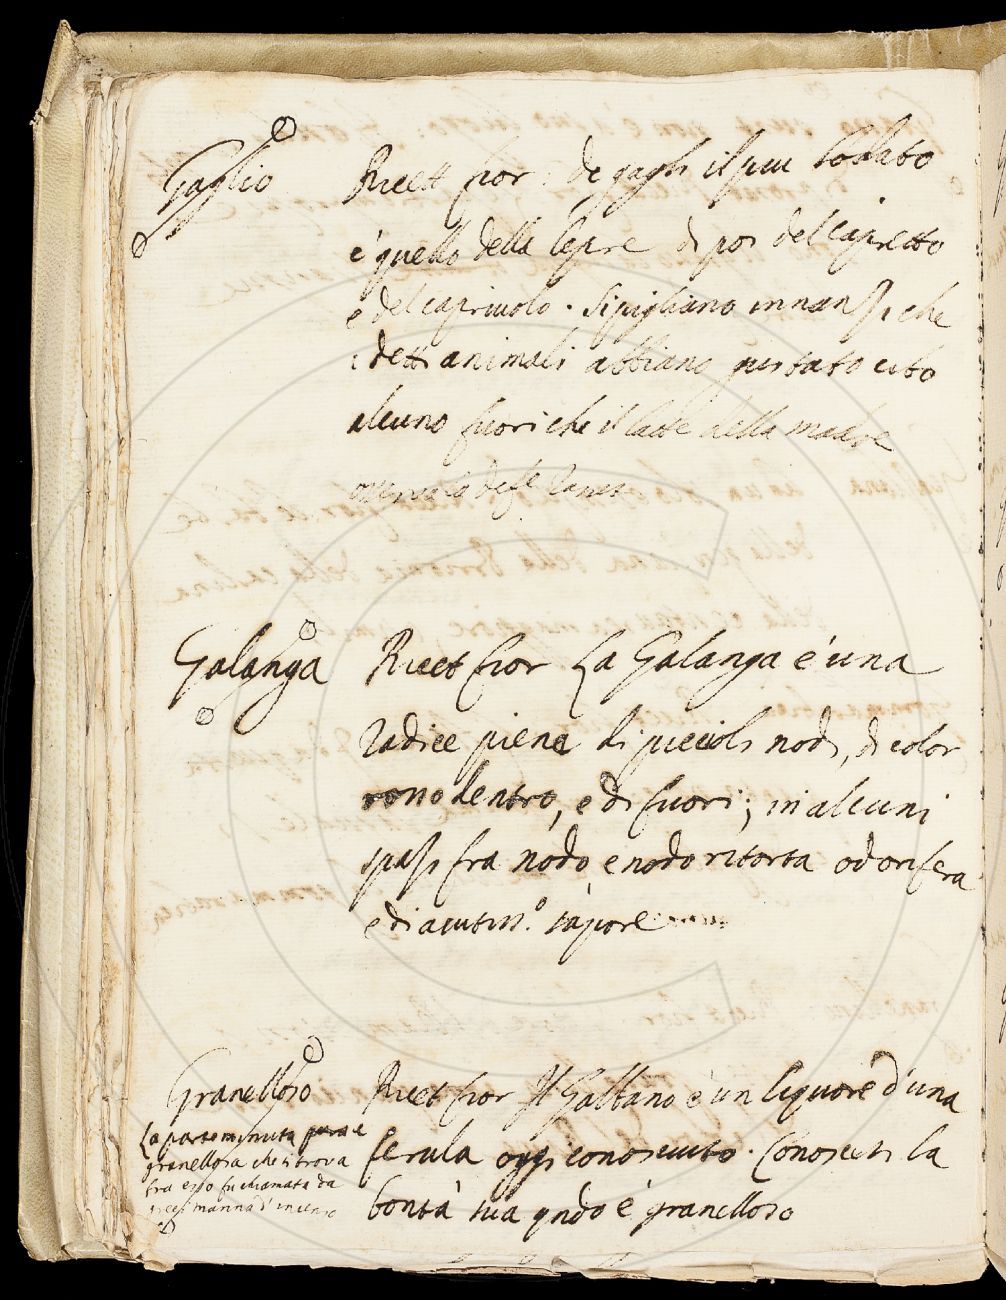 Gaglio
Ricett fior: de gagli il piu lodato
e' quello della lepre di poi del capretto
e del capriuolo. Si pigliano innanzi che
i detti animali abbiano gustato cibo
alcuno fuori che il latte della madre
Galanga
Ricet fior La Galanga è una
radice piena di piccioli nodi, di color
rosso dentro, e di fuori; in alcuni
spazi fra nodo e nodo ritorta odorifera
e di acutiss.o sapore
Granelloso
La parte minuta e
granellosa che si trova
fra esso fu chiamata da
greci manna d'incenso
Ricet fior Il Galbano è un liquore d'una
ferula oggi conosciuto. Conoscesi la
bontà sua qndo è granelloso